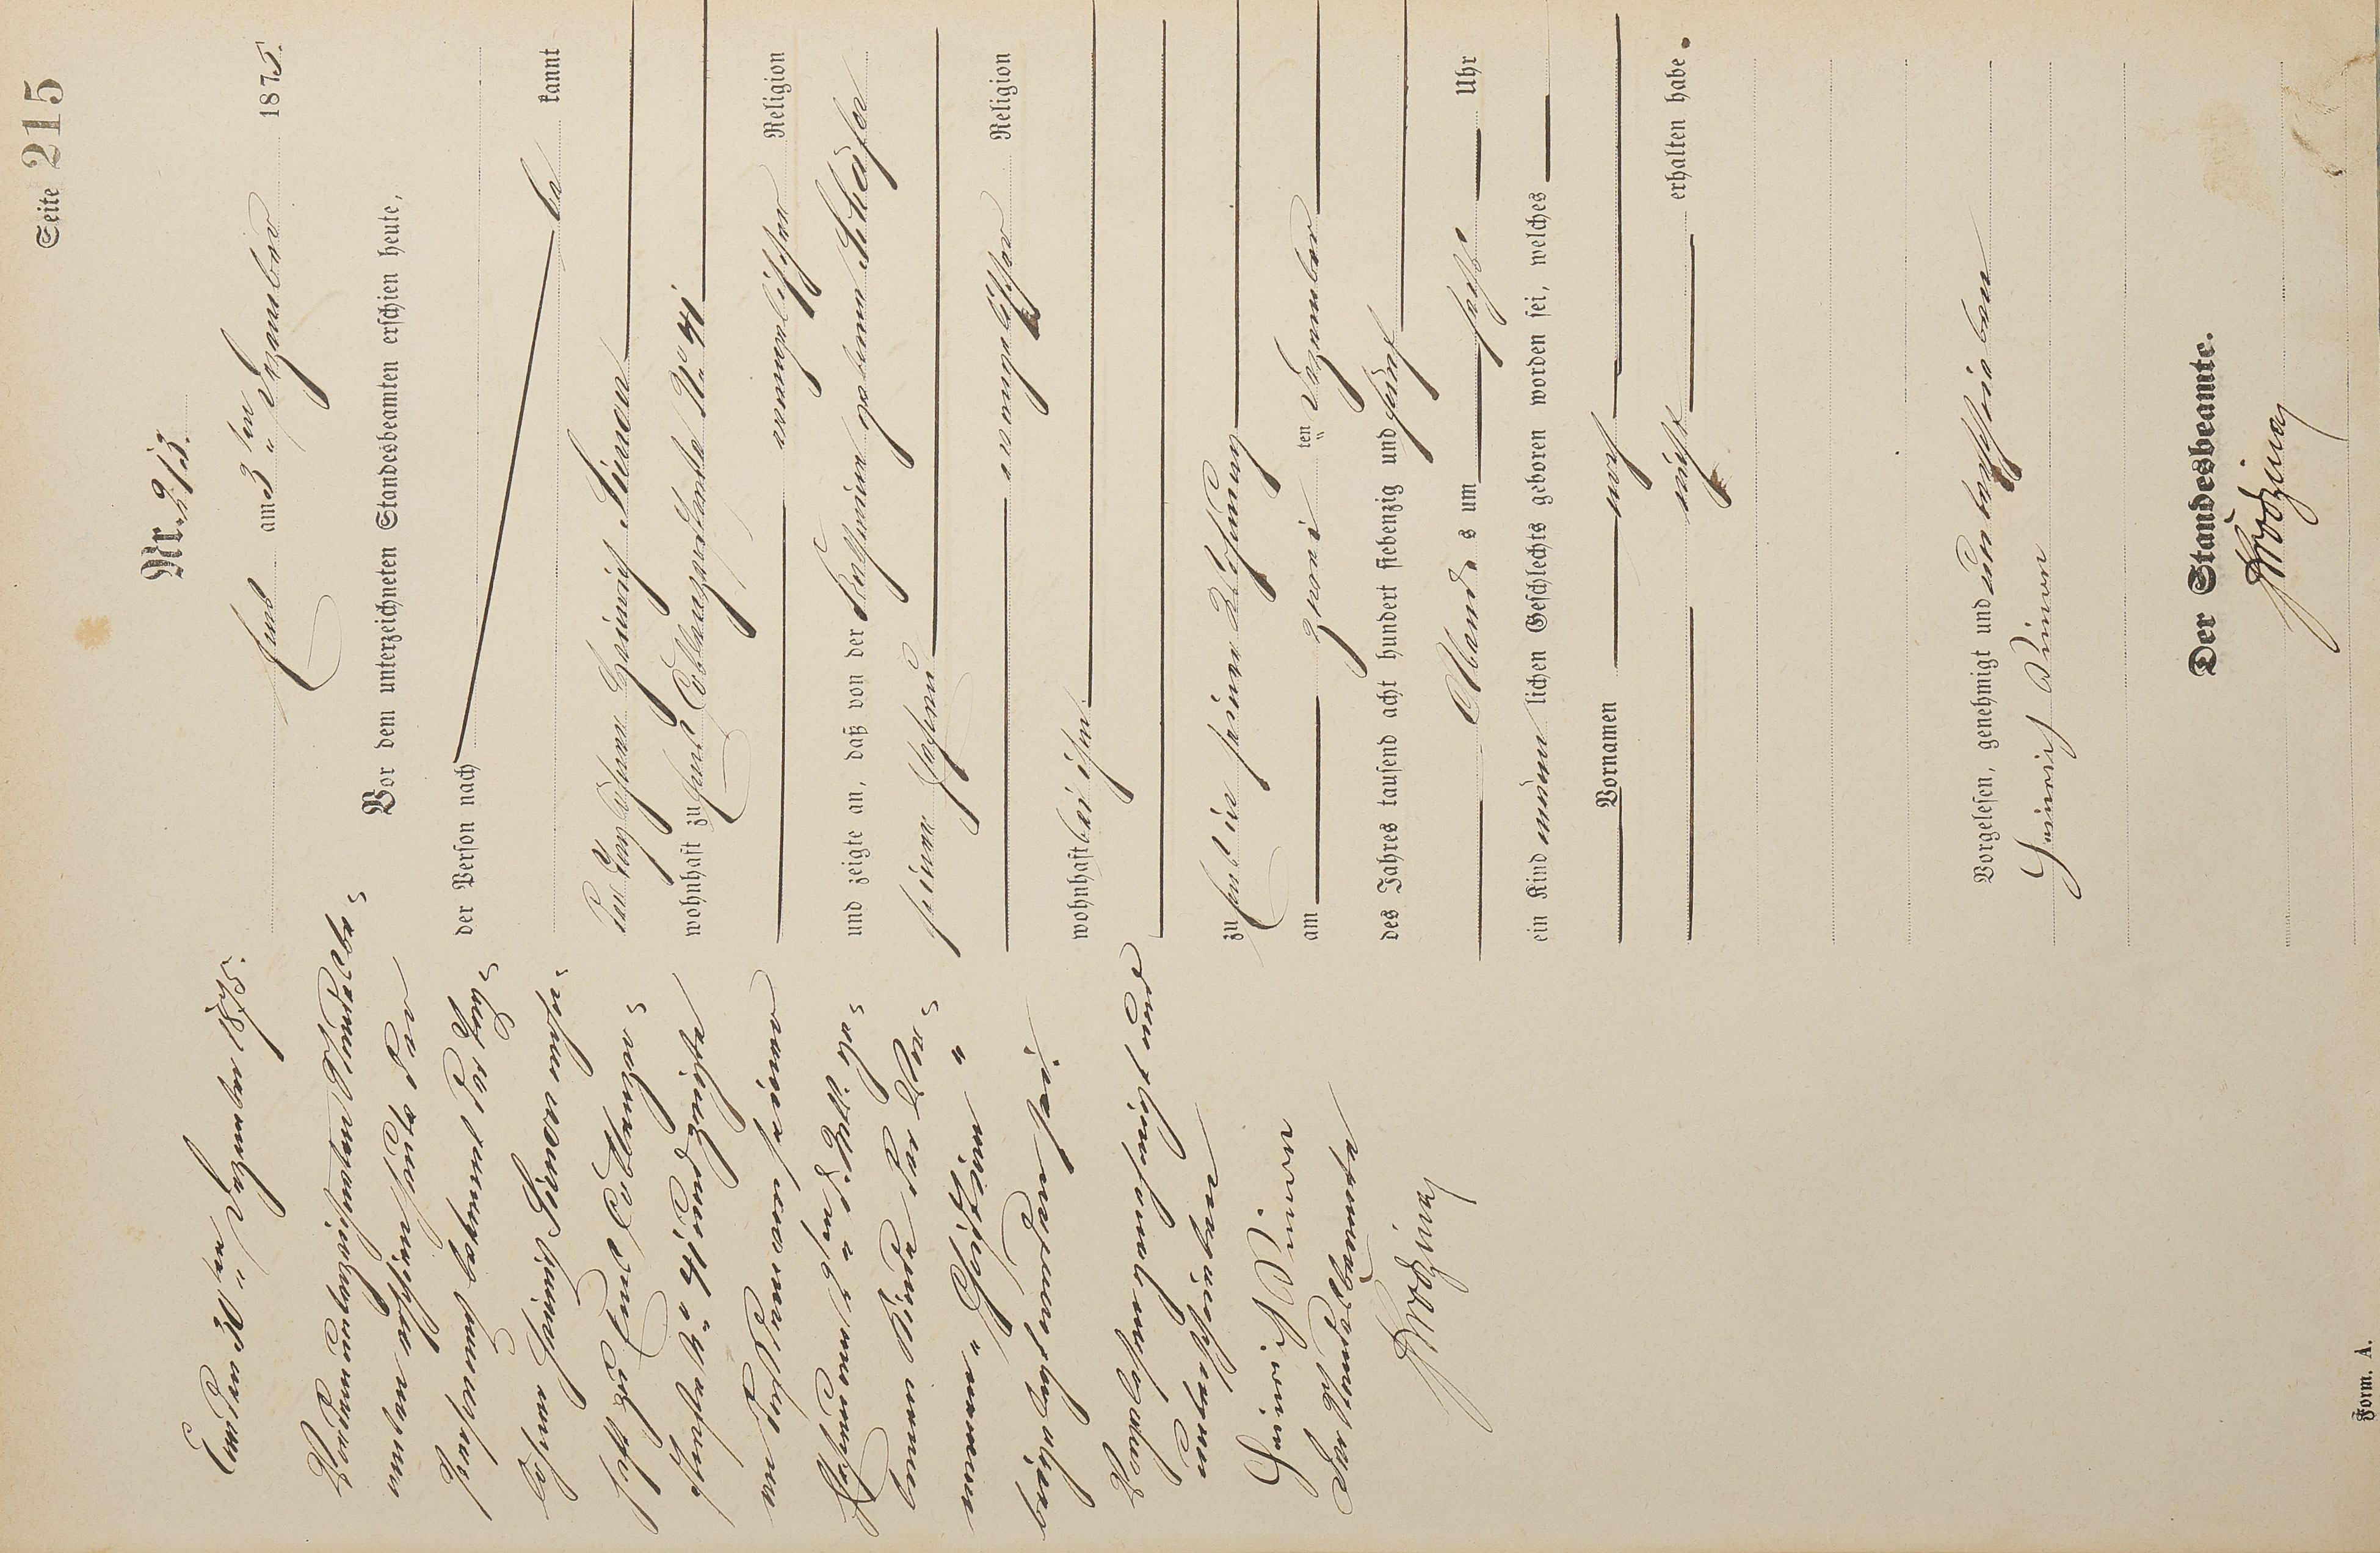 Seite 215
Nr. 213.
Caub am 3ten Dezember 1875.
Vor dem unterzeichneten Standesbeamten erschien heute,
der Person nach
be kannt
Heinrich Simon
wohnhaft zu Caub Coblenzerstraße No 41
evangelischer Religion
und zeigte an, daß von der Christine geborenen Schäfer
seiner Ehefrau
evangelischer Religion
wohnhaft bei ihm
zu Caub in seiner Wohnung
am zwei ten Dezember
des Jahres tausend acht hundert siebenzig und fünf
Abends um sechs Uhr
ein Kind männlichen Geschlechts geboren worden sei, welches
Vornamen noch
nicht erhalten habe.
Vorgelesen, genehmigt und unterschrieben
Heinrich Simon
Der Standesbeamte.
Caub den 30ten Dezember 1875.
Vor dem unterzeichneten Standesbe=
amten erschien heute der
Persönlichkeit nach bekannt der Tag=
löhner Heinrich Simon wohn=
haft zu Caub Coblenzer=
straße No 41 und zeigte
an daß dem von seiner
Ehefrau am 2ten d. Mts. ge=
borenen Kinde der Vor=
namen "Christian"
beigelegt worden sei.
Vorgelesen genehmigt und
unterschrieben
Heinrich Simon
Der Standesbeamte
Form. A.